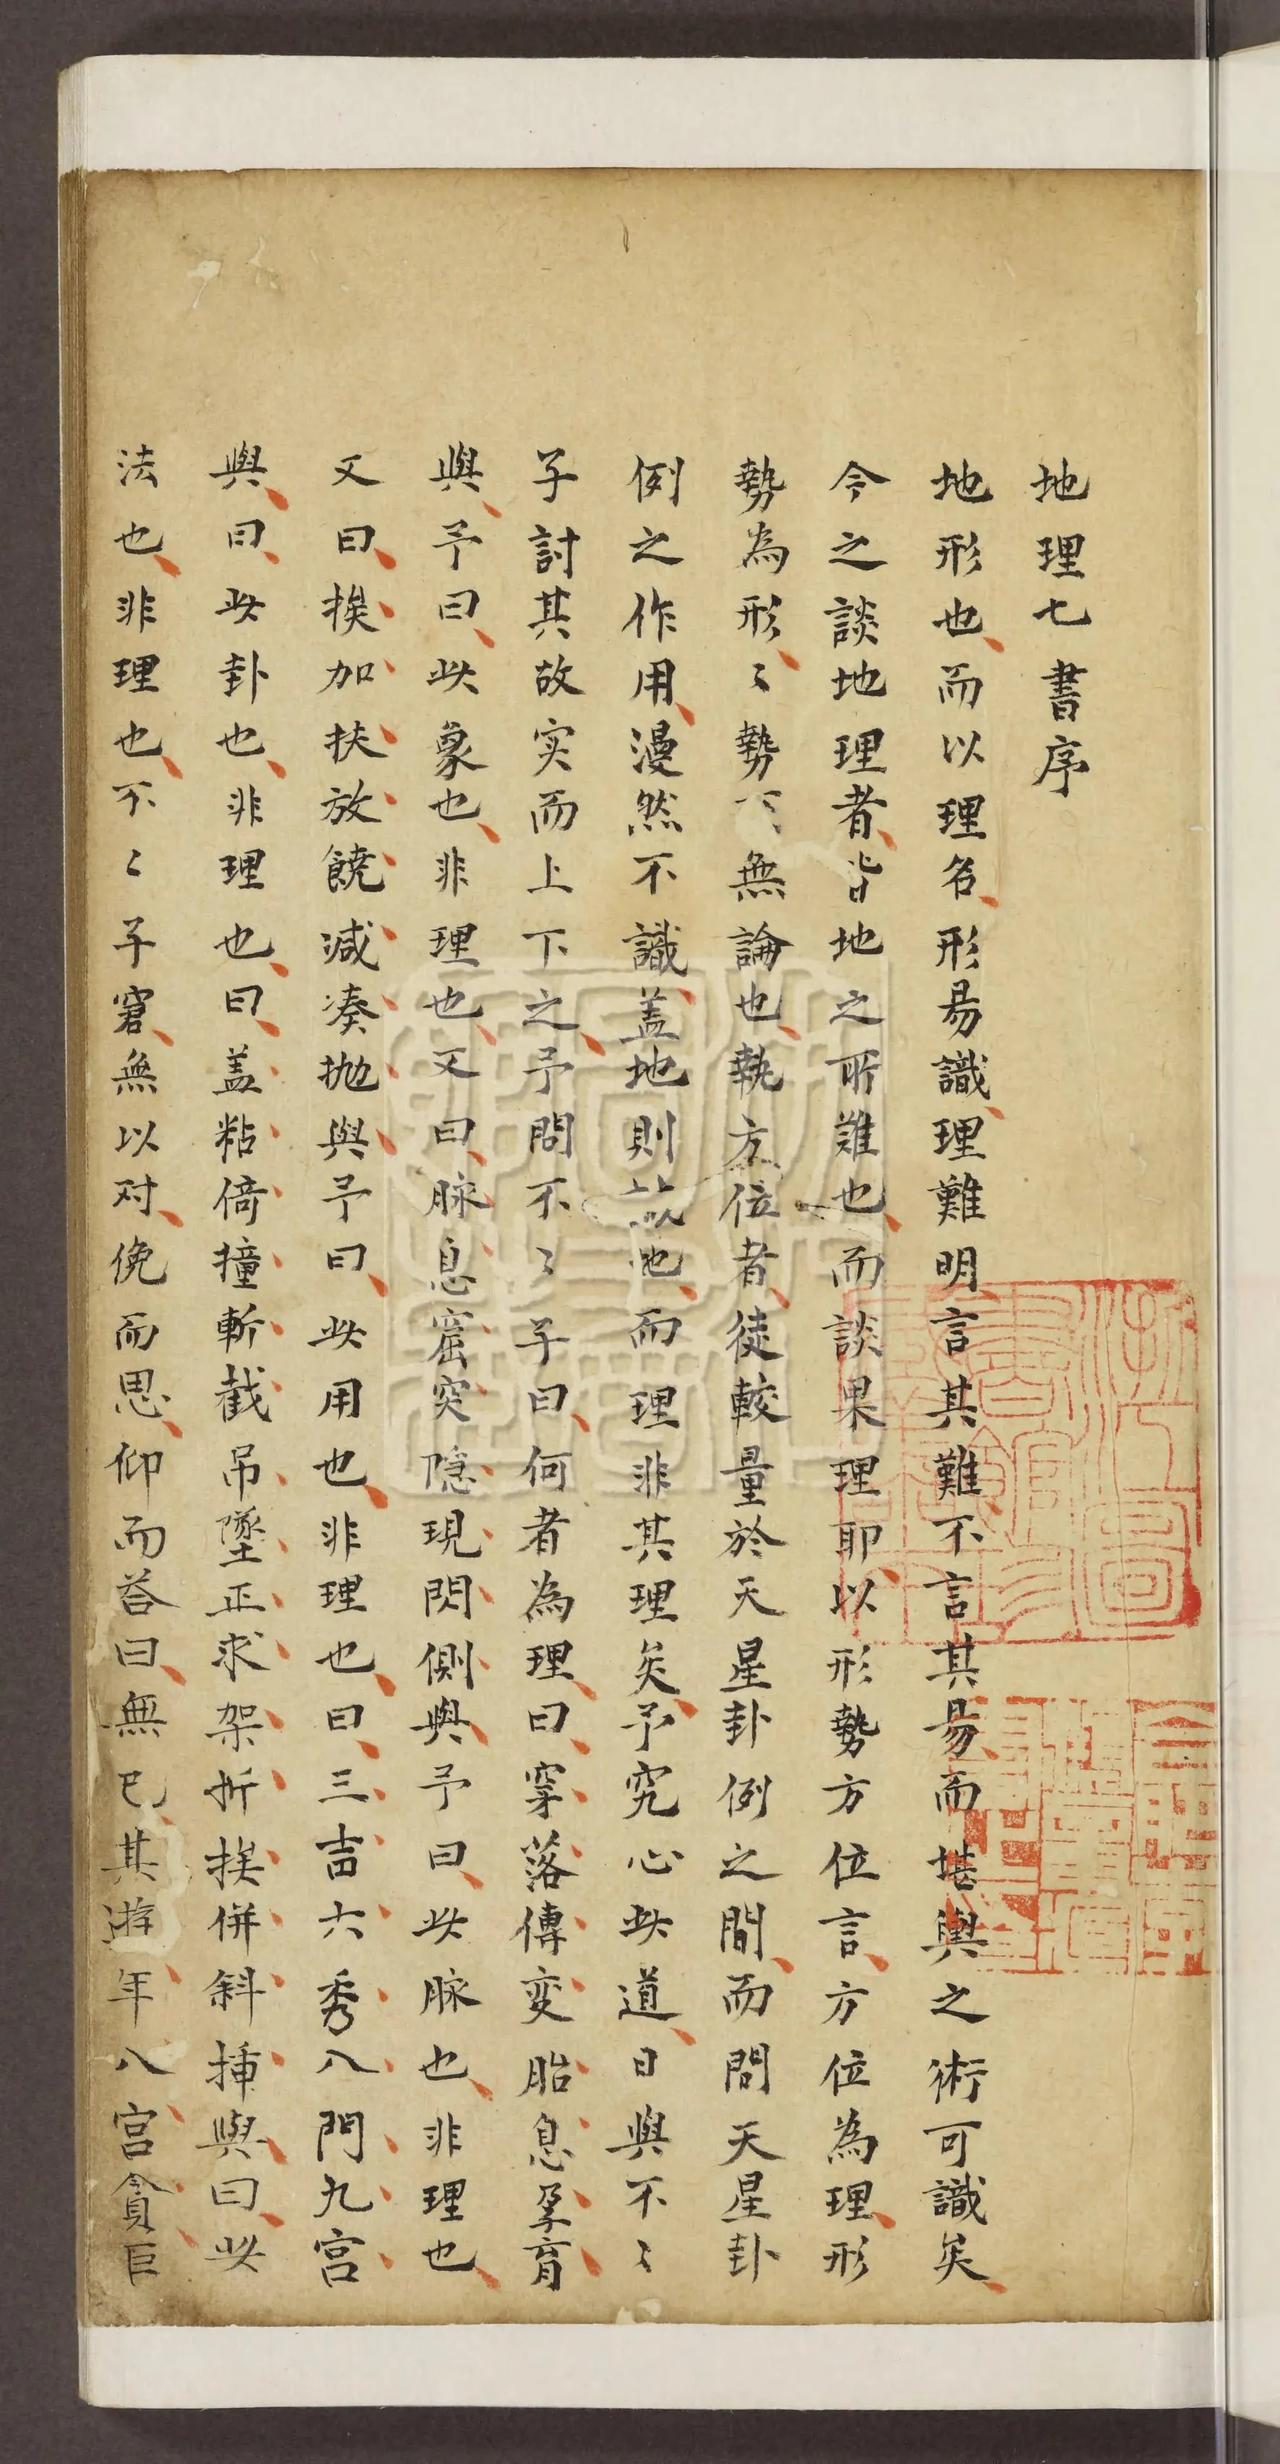 地理七書序
地形也而以理名形易識理難明言其難不言其易而堪輿之術可識矣
今之談地理者皆地之所難也而談果理耶以形勢方位言方位為理形
勢為形〻勢無論也執方位者徒較量於天星卦例之間而問天星卦
例之作用漫然不識盖地則地而理非其理矣予究心此道日與不〻
子討其故实而上下之予問不〻子曰何者為理曰穿落傳变胎息孕育
與予曰此象也非理也又曰脉息窟突隐現閃側與予曰此脉也非理也
又曰挨加扶放饒减凑抛與予曰此用也非理也曰三吉六秀八門九宮
與曰此卦也非理也曰盖粘倚撞斬截吊墜正求架折挨併斜插與曰此
法也非理也不〻子窘無以对俛而思仰而荅曰無已其遊年八宮貪巨